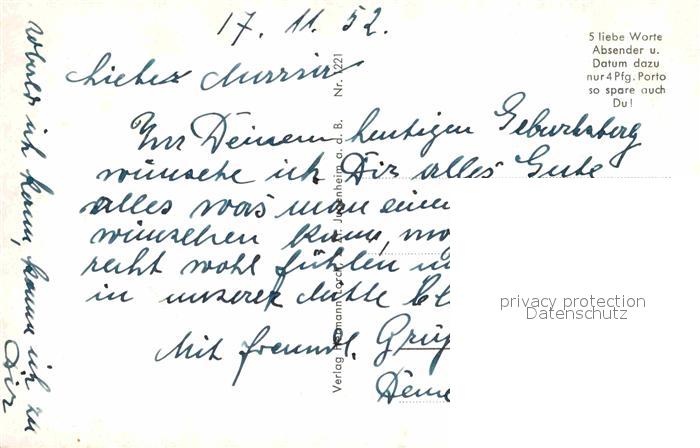 17. 11. 52.
5 liebe Worte
Absender u.
Datum dazu
nur 4 Pfg. Porto
so spare auch
Du!
Lieber
Zur Deinem heutigen Geburtstag
wünsche ich Dir alles Gute
alles was man einem
wünschen kann,
recht wohl fühlen
in unserer Mitte
Mit freundl. Grüß
Deine
Sobald ich kann, komme ich zu
Dir
Verlag Hermann Lorch, Jugenheim a. d. B. Nr. 1221
privacy protection
Datenschutz